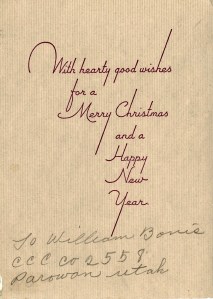 With hearty good wishes
for a
Merry Christmas
and a
Happy
New
Year
To William Bonis
CCC Co 2558
Parowan utah